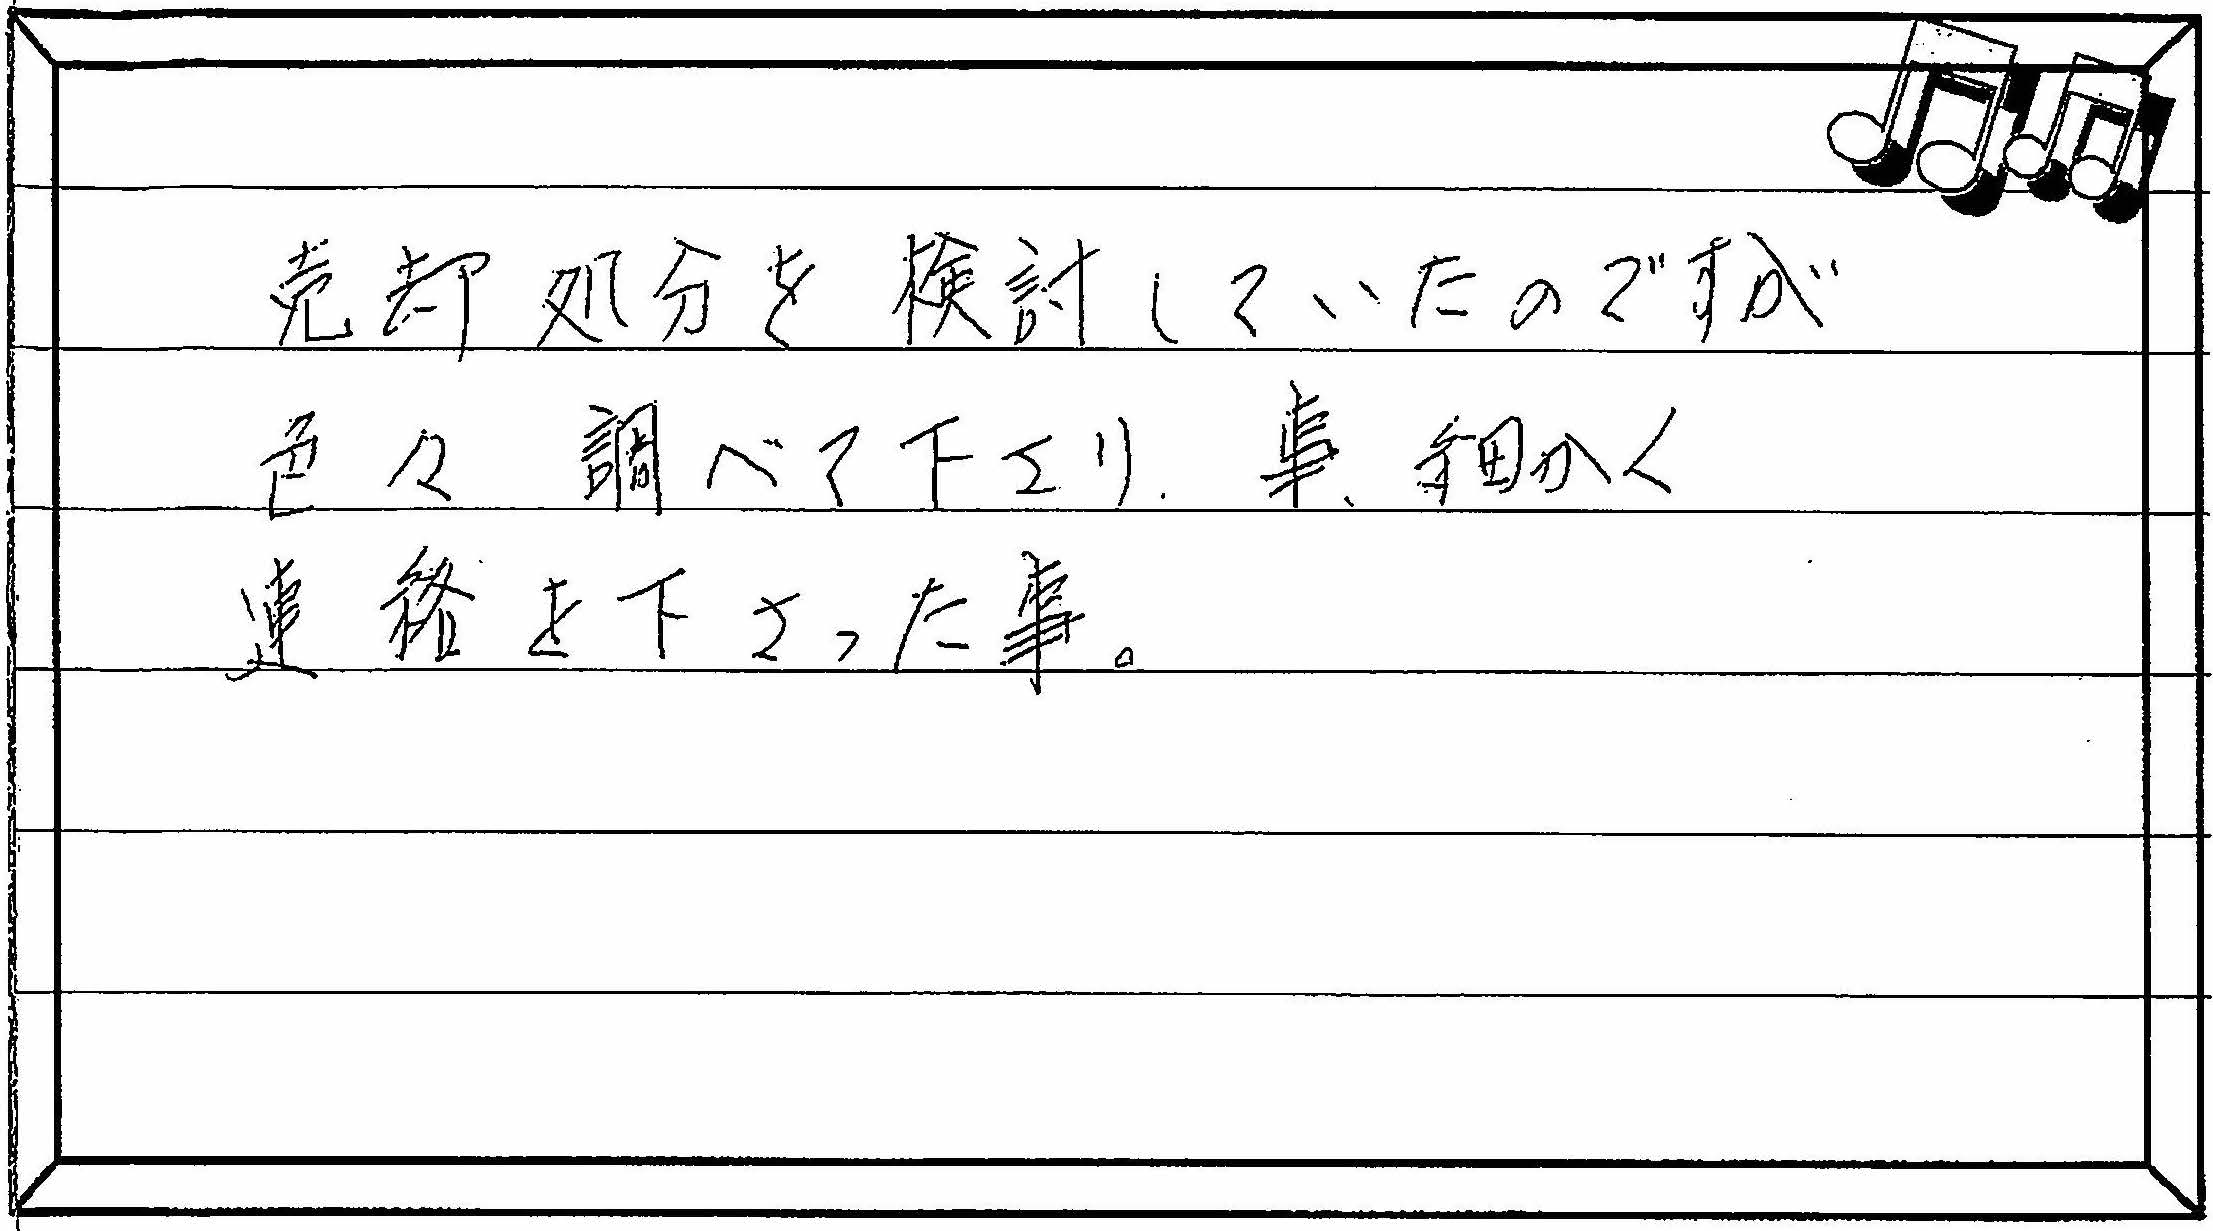 売却処分を検討していたのですが
色々調べて下さり、事、細かく
連絡を下さった事。